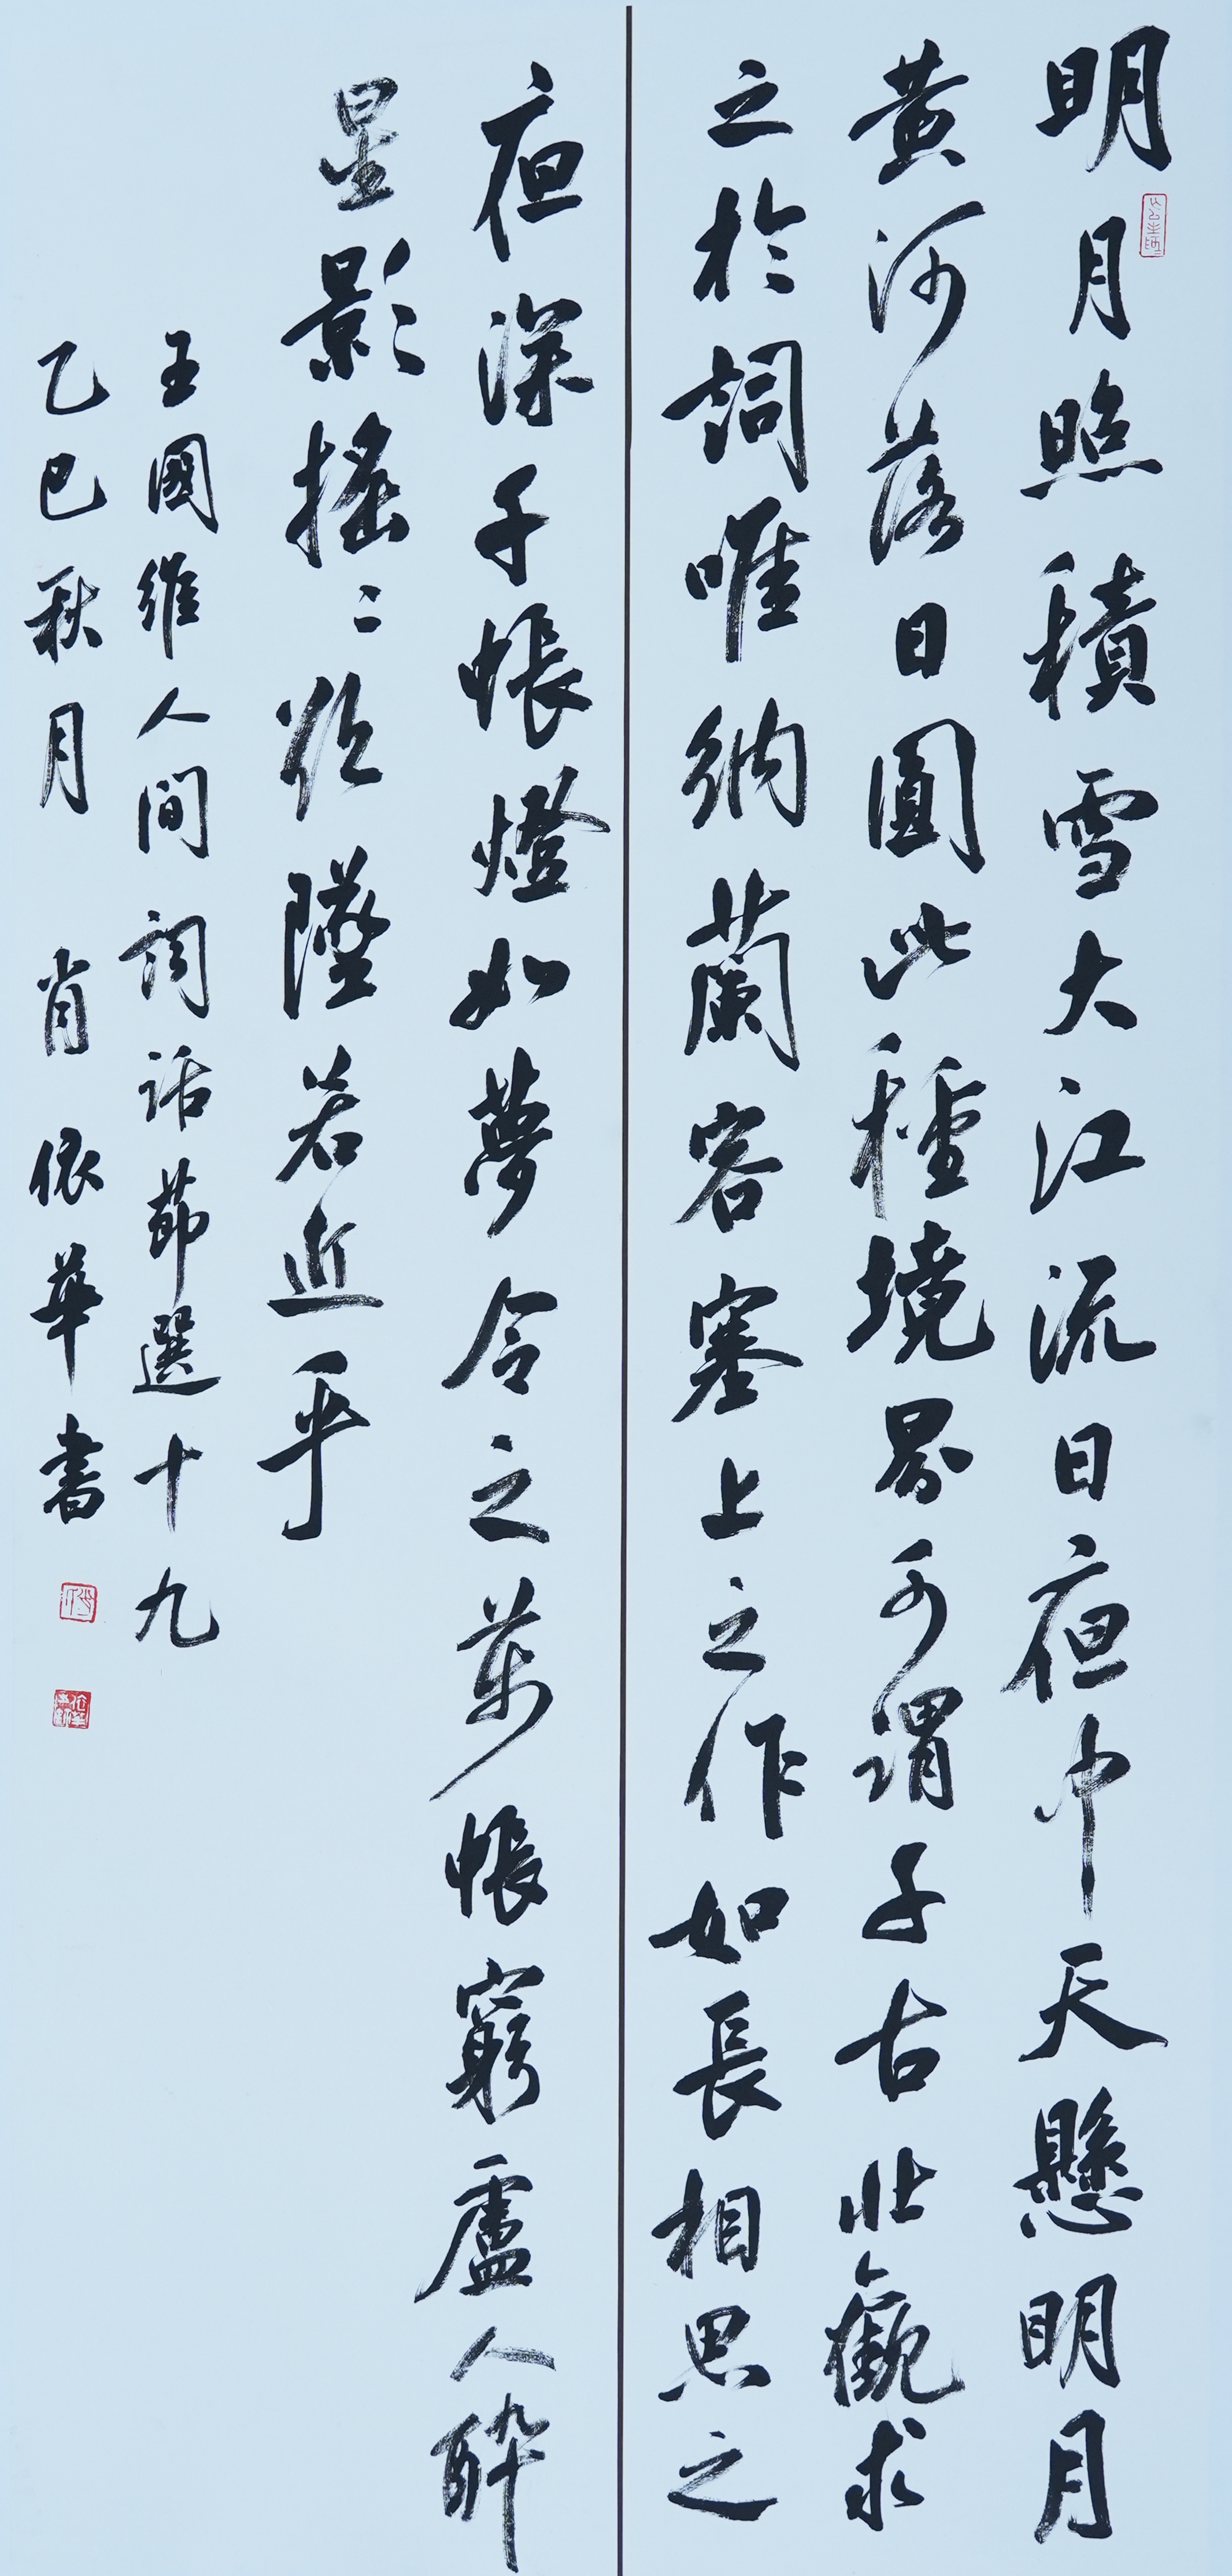 明月照積雪大江流日夜中天懸明月
黃河落日圓此種境界可謂千古壯觀求
之於詞唯納蘭容塞上之作如長相思之
夜深千帳燈如夢令之萬帳窮盧人醉
星影搖〻欲墜若近乎
王國維人間詞話節選十九
乙巳秋月 肖依華書